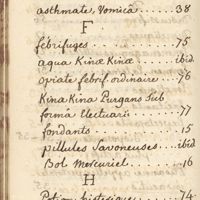 asthmate, Vomica .... 38
F
fébrifuges ........ 75
aqua Kinæ Kinæ ..... ibid
opiate febrif. ordinaire .. 76
Kina Kina Purgans Sub
forma Electuarii ..... 77
fondants ......... 15
pillules Savoneuses ... ibid
Bol Mercuriel ..... 16
H
Potion histerique ... 74